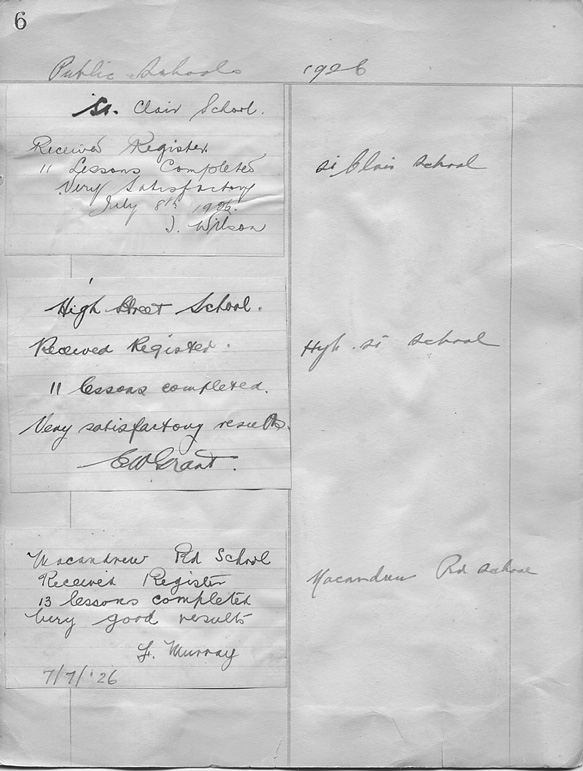 6
Public Schools 1926
St. Clair School.
Received Register.
11 Lessons Completed
Very Satisfactory
July 8th 1926.
J. Wilson
St Clair School
High Street School.
Received Register.
11 lessons completed.
Very satisfactory results.
EW Grant.
High. St School
Macandrew Rd School
Received Register
13 lessons completed
Very good results
F. Murray
7/7/'26
Macandrew Rd School